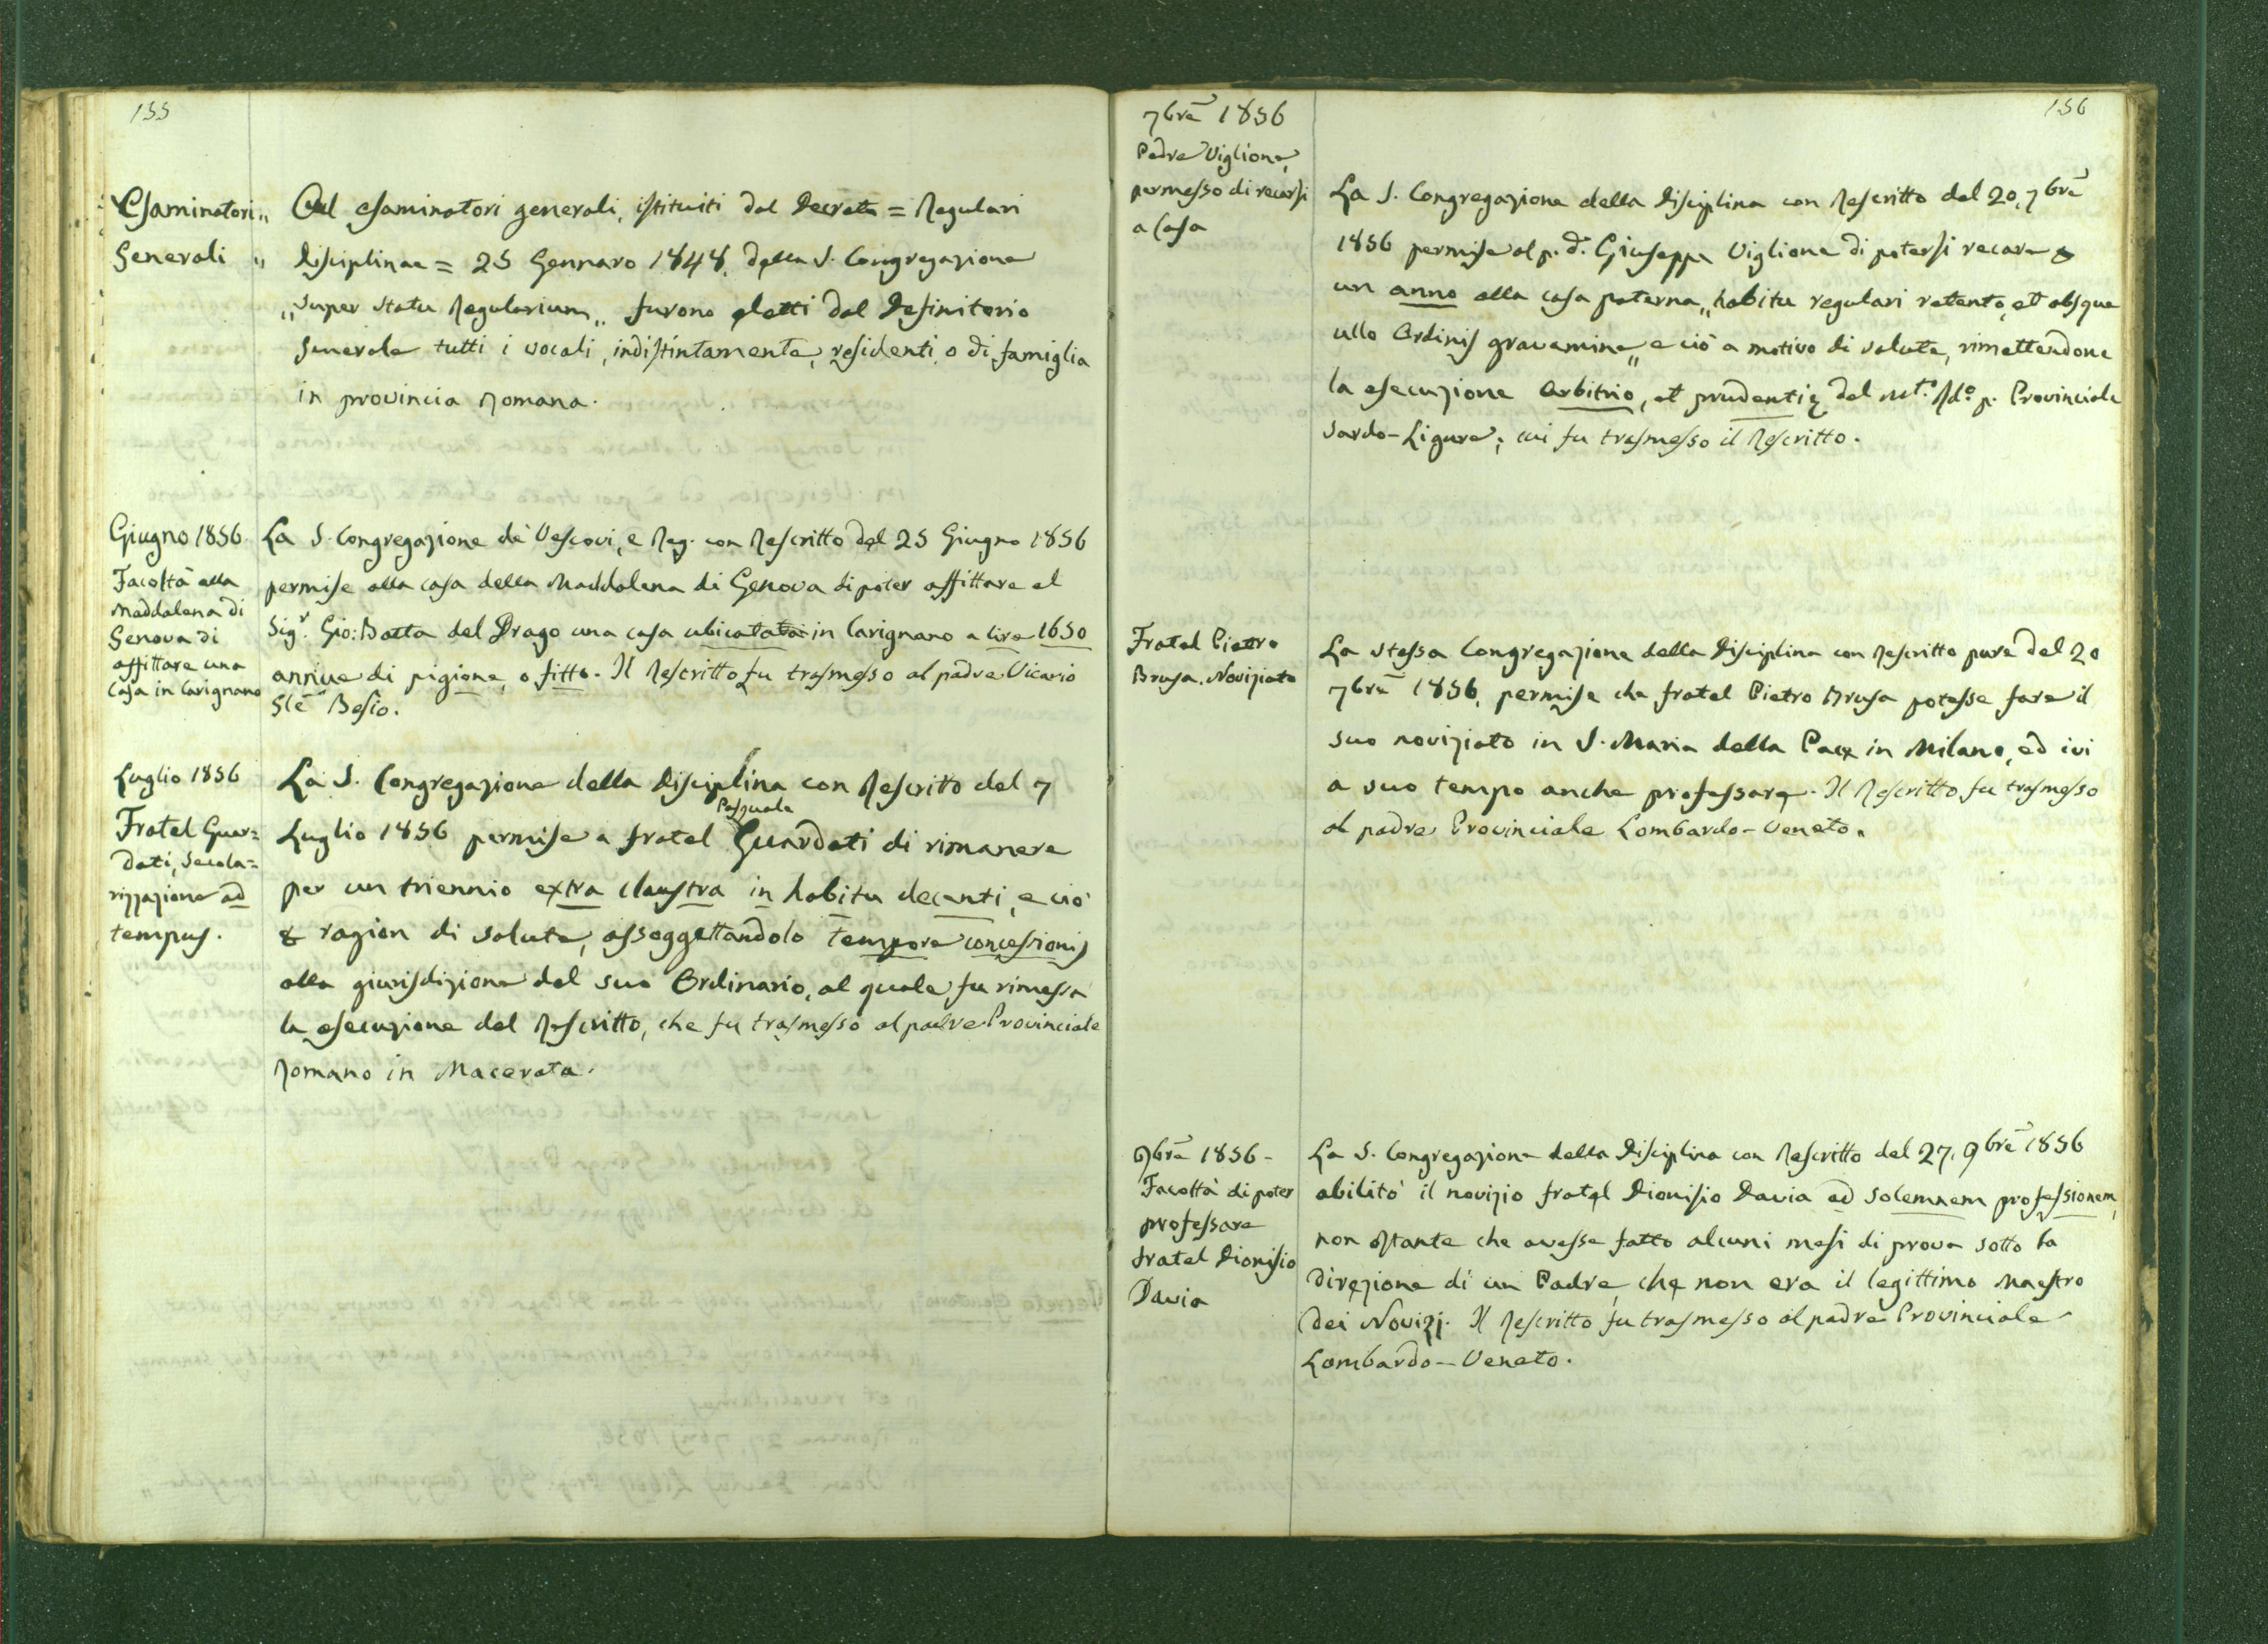 155
Esaminatori „
Generali „
Ad esaminatori generali, istituiti dal Decreto = Regulari
Disciplinae = 25 Gennaro 1848, della S. Congregazione
„super statu Regularium„ furono eletti dal Definitorio
Generale tutti i vocali, indistintamente, residenti o di famiglia
in provincia Romana.
Giugno 1856.
Facoltà alla
Maddalena di
Genova di
affittare una
casa in Carignano
La S. Congregazione de' Vescovi, e Reg. con Rescritto del 25 Giugno 1856
permise alla casa della Maddalena di Genova di poter affittare al
Sigr. Gio: Batta del Drago una casa ubicata in Carignano a lire 1650
annue di pigione, o fitto. Il Rescritto fu trasmesso al padre Vicario
Gle Besio.
Luglio 1856
Fratel Guar=
dati, secola=
rizzazione ad
tempus.
La S. Congregazione della Disciplina con Rescritto del 7
Pasquale
Luglio 1856 permise a fratel Guardati di rimanere
per un triennio extra claustra in habitu decenti, e ciò
& ragion di salute, assoggettandolo tempore concessionis
alla giurisdizione del suo Ordinario, al quale fu rimessa
la esecuzione del Rescritto, che fu trasmesso al padre Provinciale
Romano in Macerata.
156
7bre 1856
Padre Viglione,
permesso di recarsi
a casa
La S. Congregazione della Disciplina con Rescritto del 20, 7bre
1856 permise al p. d. Giuseppe Viglione di potersi recare &
un anno alla casa paterna „habitu regulari retento, et absque
ullo Ordinis gravamine„ e ciò a motivo di salute, rimettendone
la esecuzione arbitrio, et prudentię del Mt.o Rdo. p. Provinciale
Sardo-Ligure; cui fu trasmesso il Rescritto.
Fratel Pietro
Brusa. Noviziato
La stessa Congregazione della Disciplina con Rescritto pure del 20
7bre 1856, permise che fratel Pietro Brusa potesse fare il
suo noviziato in S. Maria della Pace in Milano, ed ivi
a suo tempo anche professare. Il Rescritto fu trasmesso
al padre Provinciale Lombardo-Veneto.
9bre 1856 -
Facoltà di poter
professare
fratel Dionisio
Davia
La S. Congregazione della Disciplina con Rescritto del 27, 9bre 1856
abilitò il novizio fratel Dionisio Davia ad solemnem professionem,
non ostante che avesse fatto alcuni mesi di prova sotto la
direzione di un Padre, che non era il legittimo Maestro
dei Novizj. Il Rescritto fu trasmesso al padre Provinciale
Lombardo-Veneto.